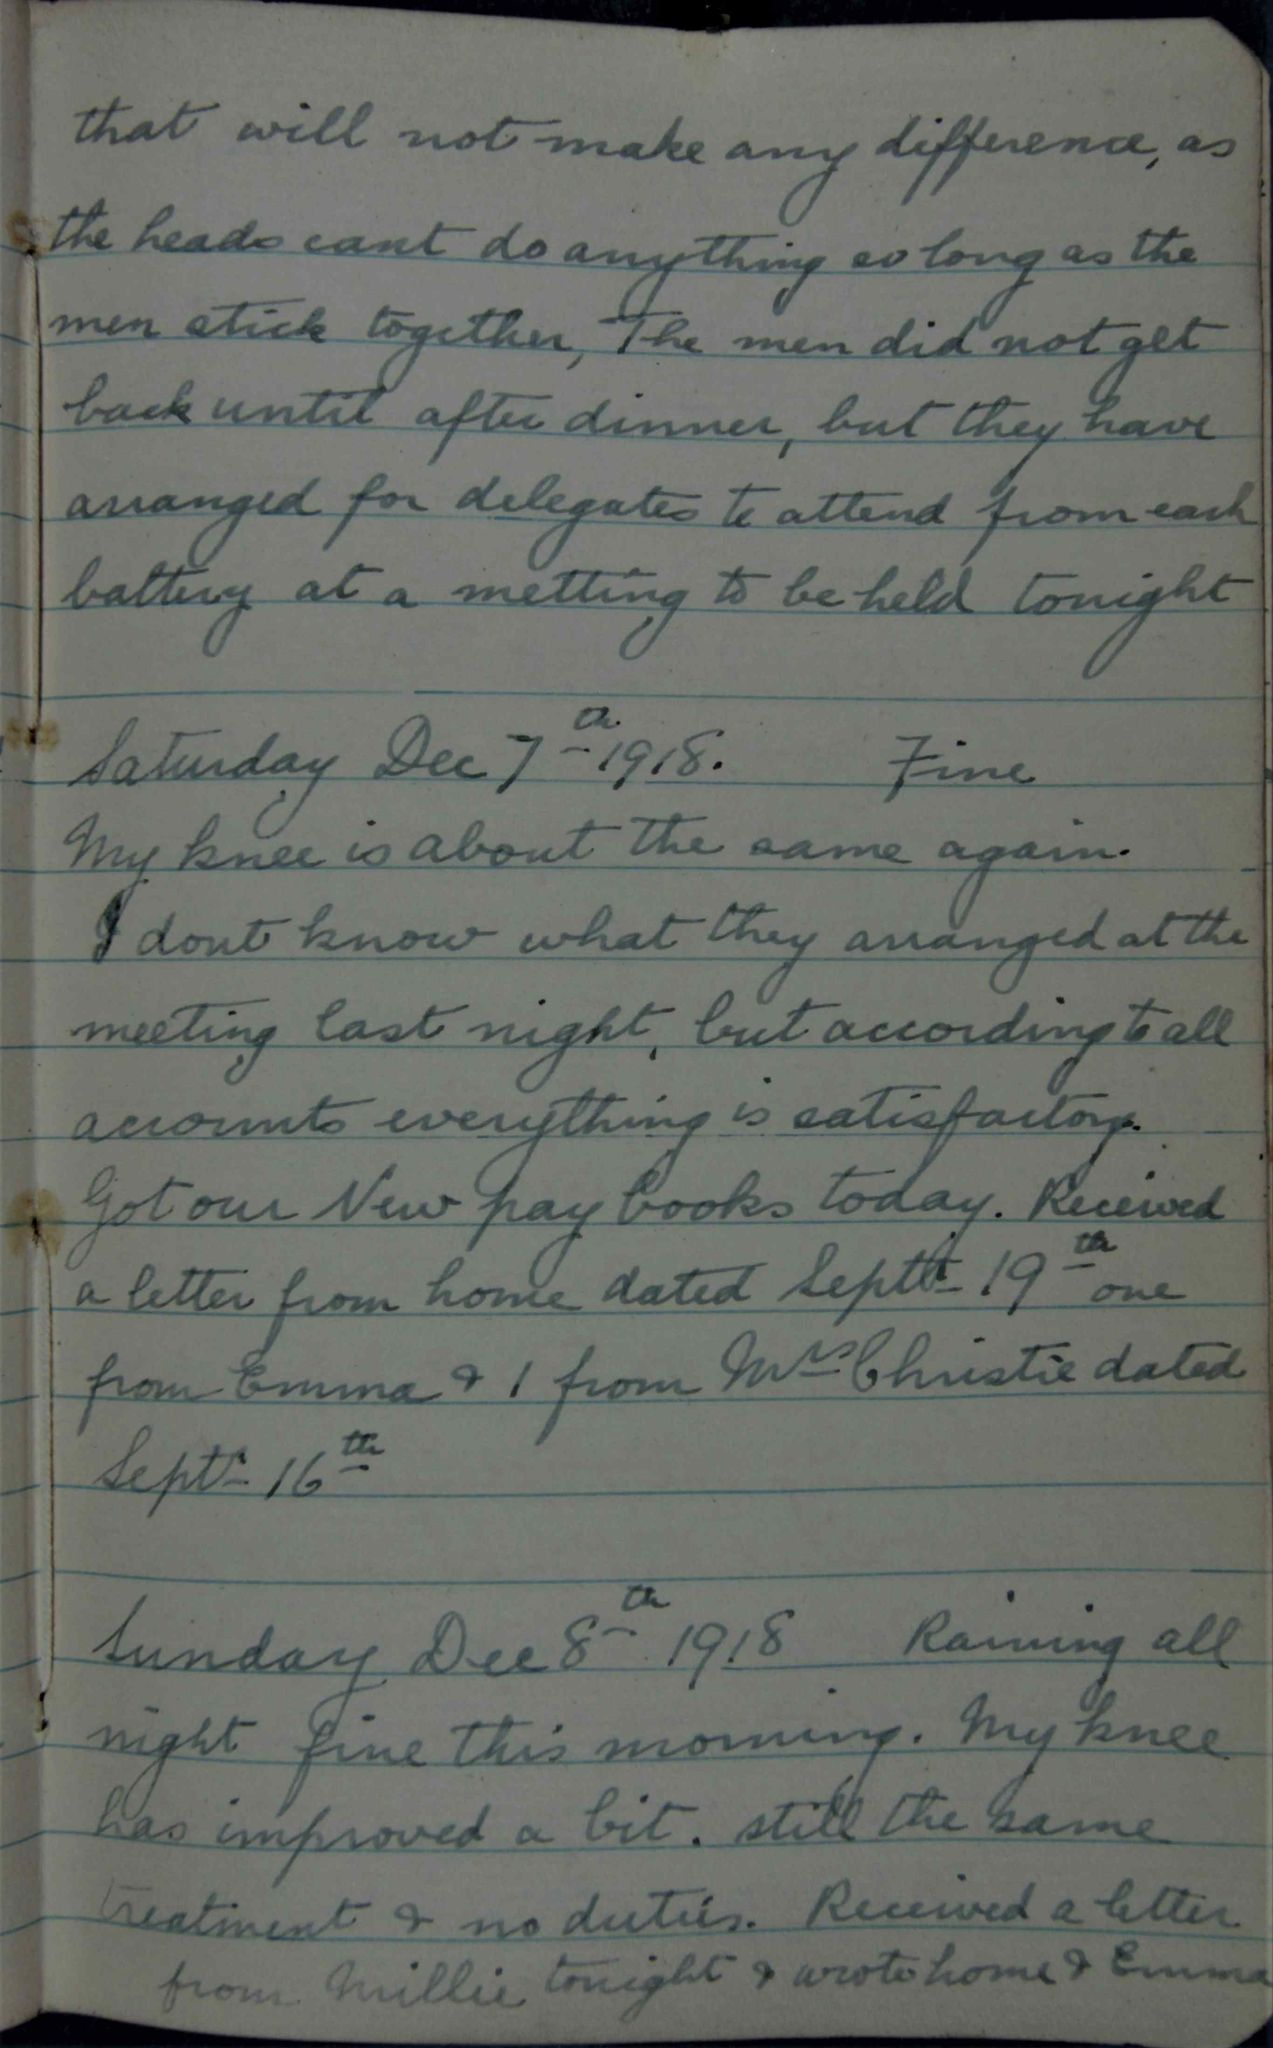 that will not make any difference, as
the heads cant do anything so long as the
men stick together, The men did not get
back until after dinner, but they have
arranged for delegates to attend from each
battery at a metting to be held tonight
Saturday Dec 7th 1918. Fine
My knee is about the same again.
I dont know what they arranged at the
meeting last night, but according to all
accounts everything is satisfactory.
Got our New pay books today. Received
a letter from home dated Septt 19th one
from Emma & 1 from Mrs Christie dated
Septt 16th
Sunday Dec 8th 1918 Raining all
night fine this morning. My knee
has improved a bit. still the same
treatment & no duties. Received a letter
from Millie tonight & wrote home & Emma